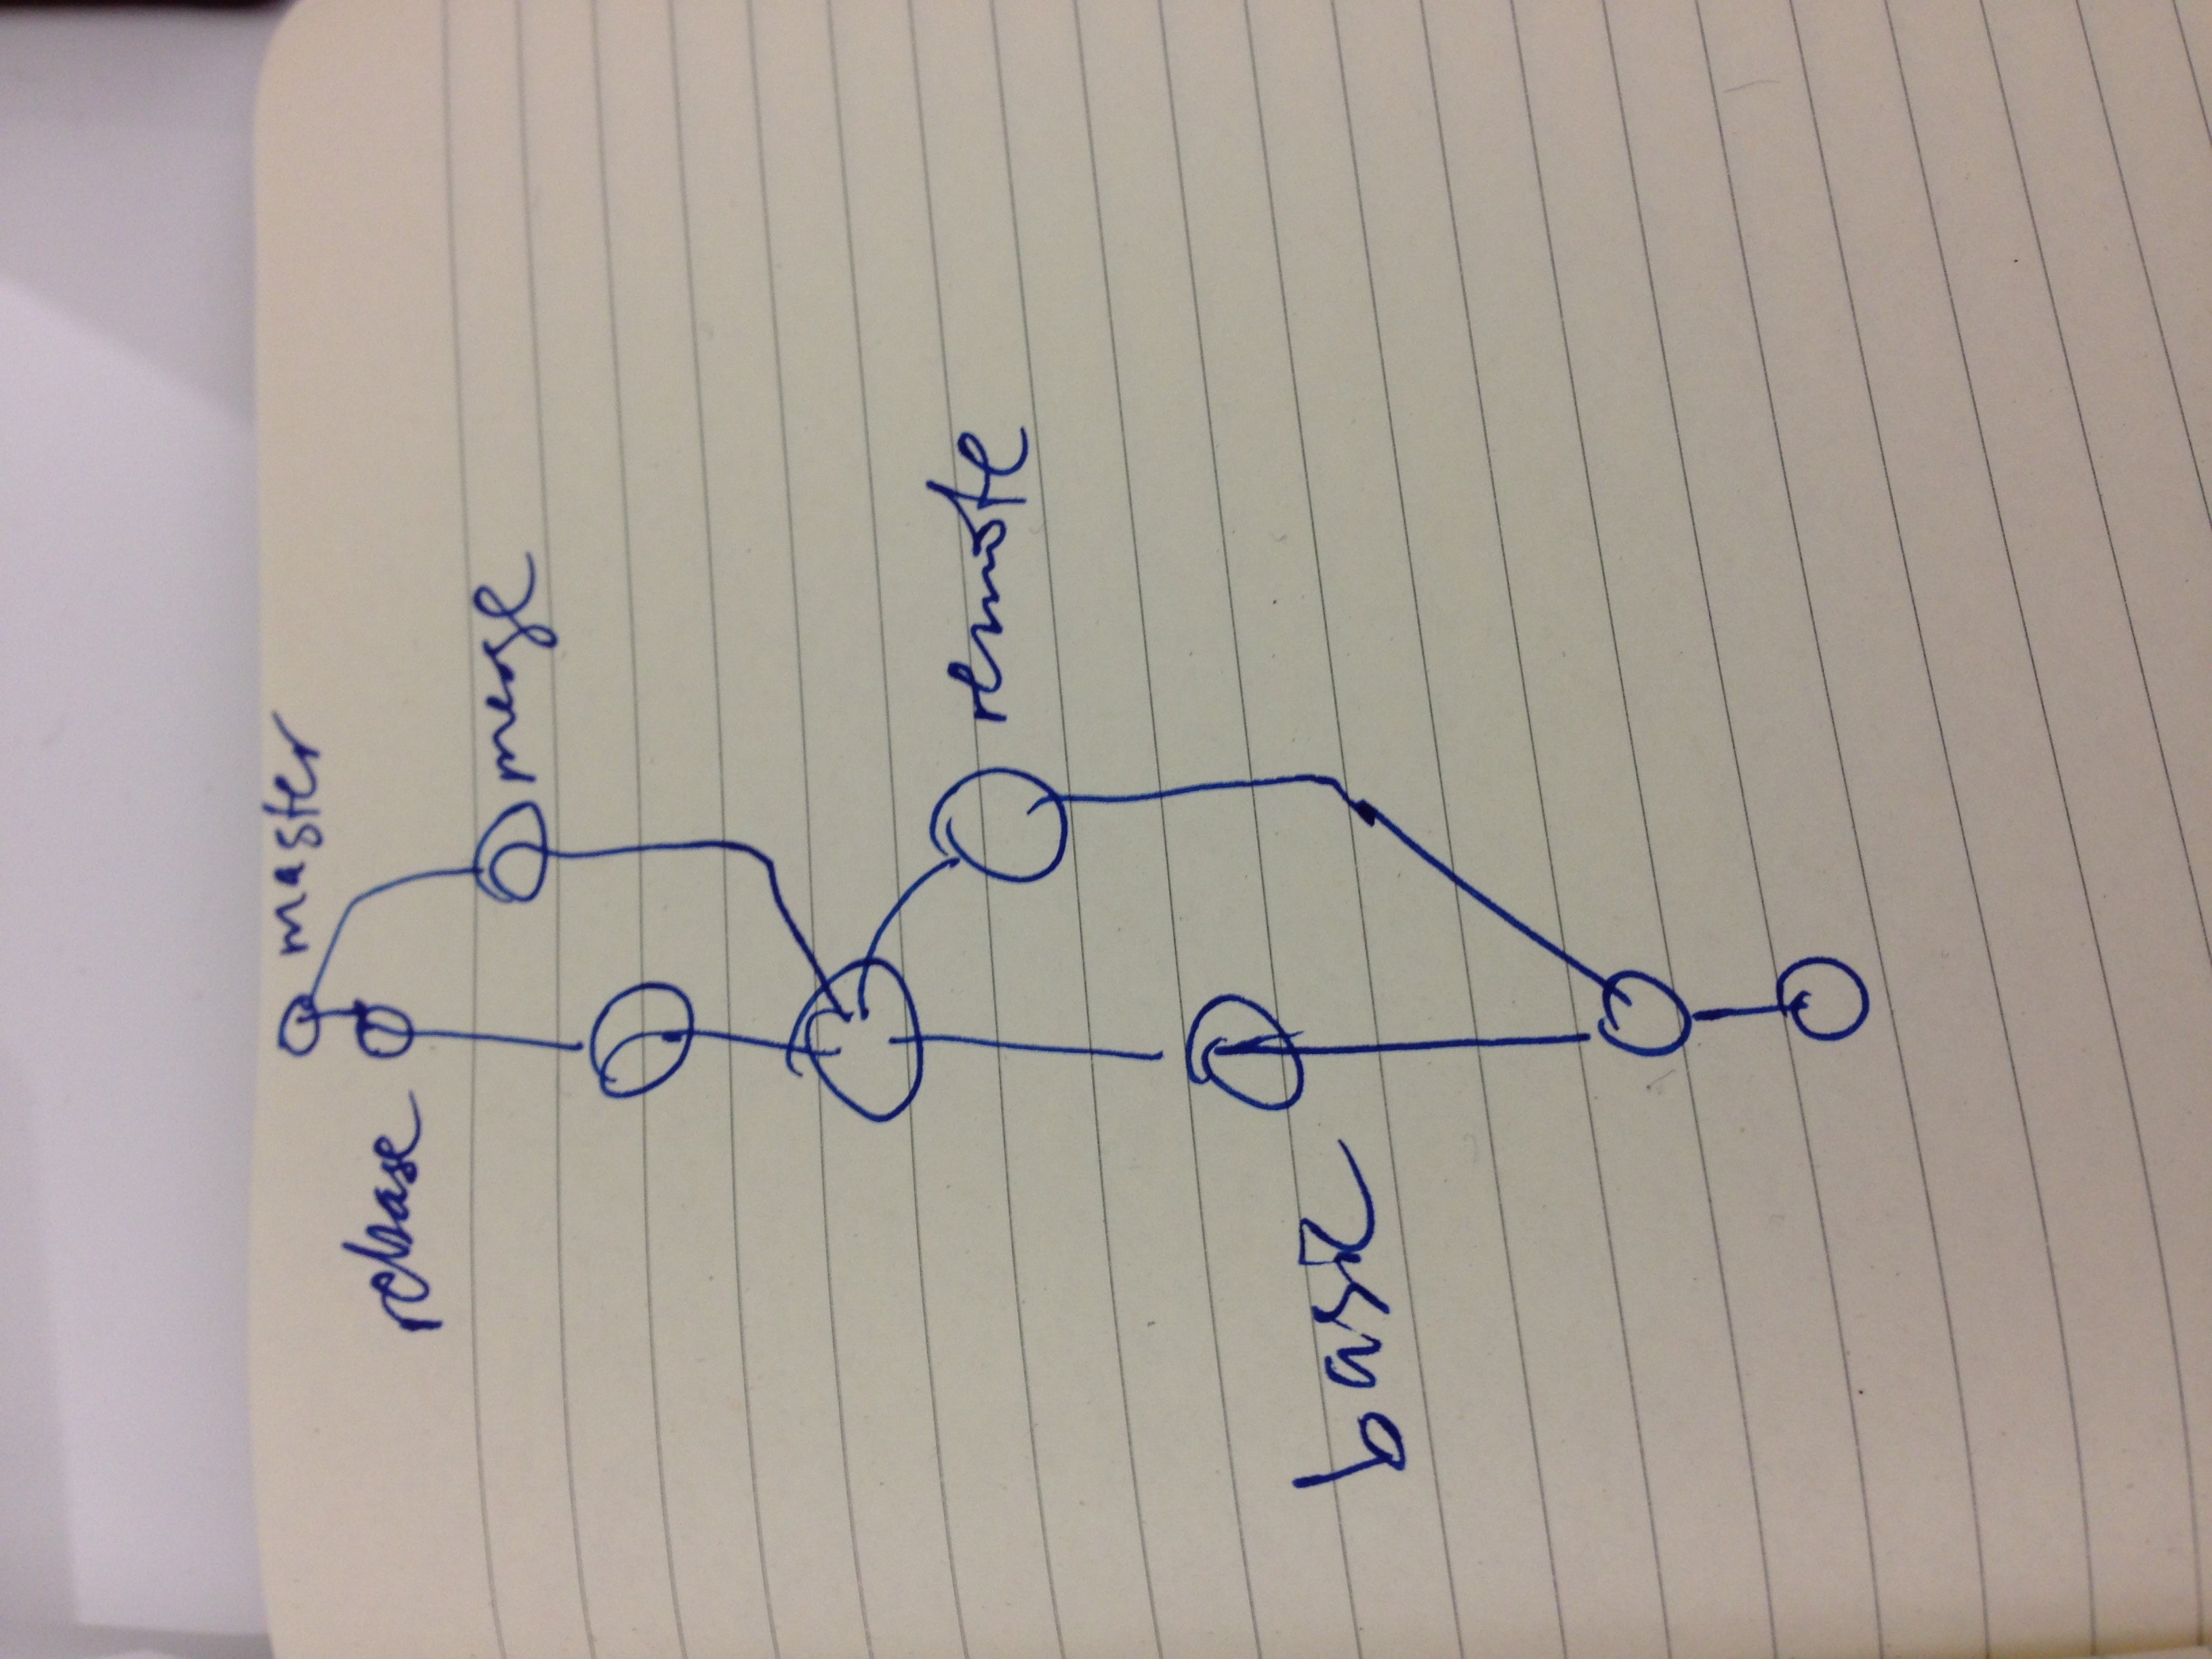 master
rebase
merge
remote
base